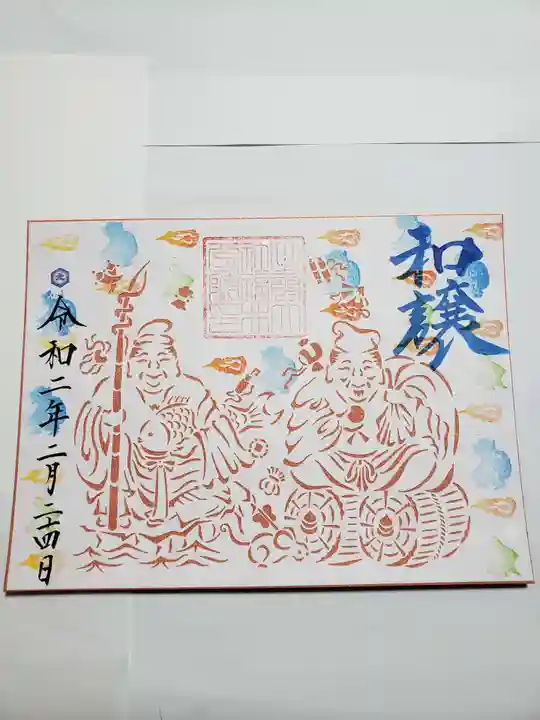 和譲
令和二年二月二十四日